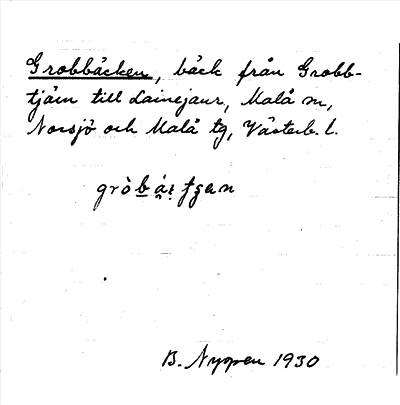 Grobbäcken, bäck från Grobb-
tjärn till Lainejaur, Malå sn,
Norsjö och Malå tg, Västerb. l.
B. Nypen 1930